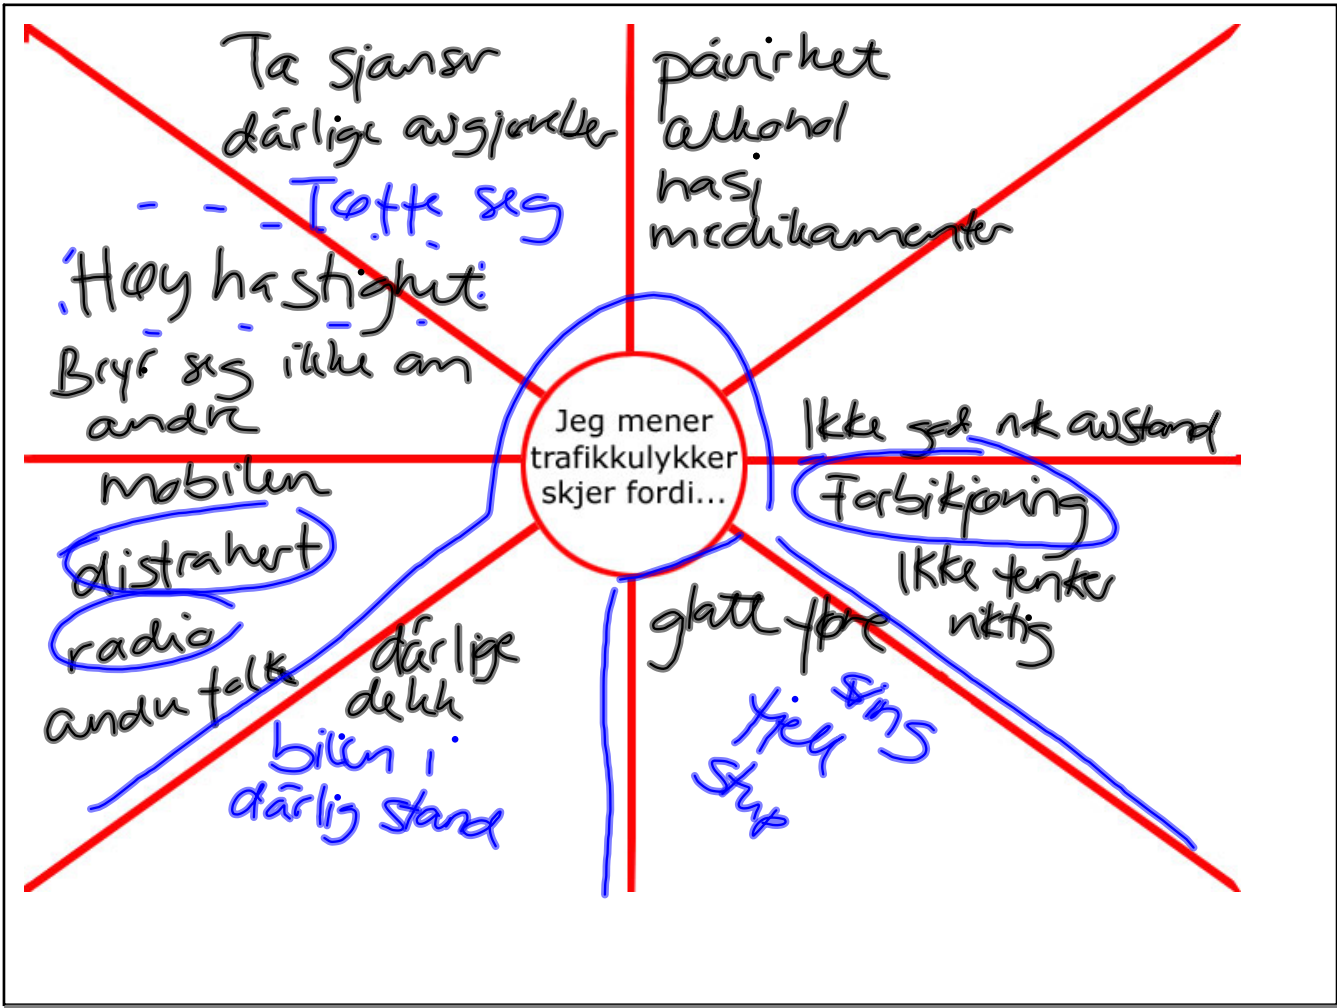 Ta sjanser
dårlige avgjørelser
Tøffe seg
Høy hastighet
Bryr seg ikke om
andre
påvirket
alkohol
hasj
medikamenter
Jeg mener
trafikkulykker
skjer fordi...
Ikke god nok avstand
Forbikjøring
Ikke tenker
riktig
mobilen
distrahert
radio
andre folk
dårlige
dekk
bilen i
dårlig stand
glatt føre
sving
fjell
stup